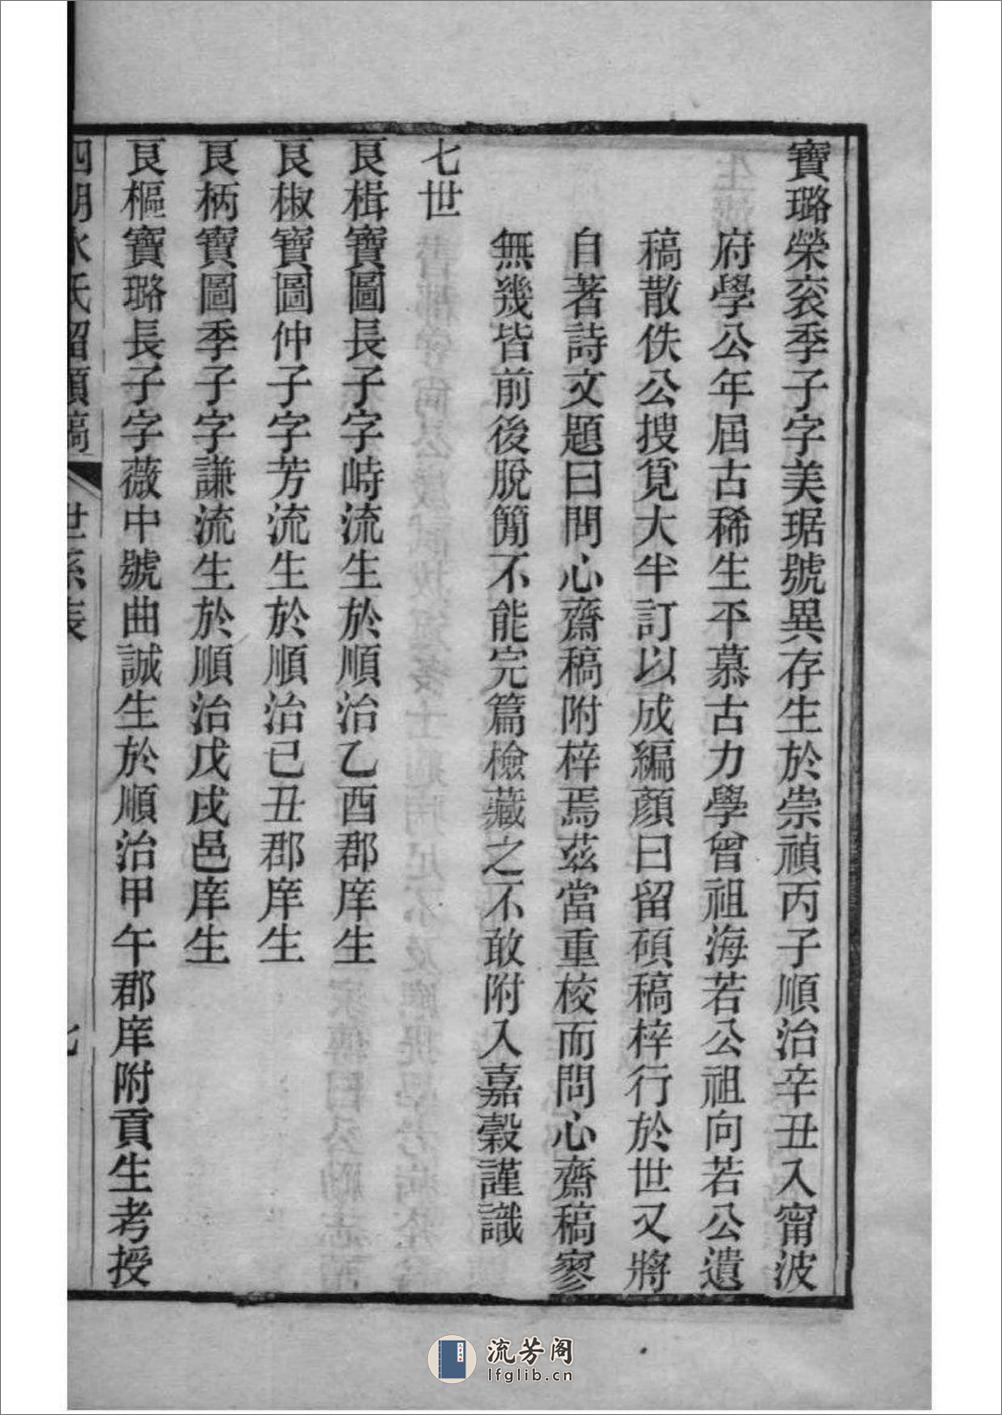 寶璐榮衮季子字美琚號異存生於崇禎丙子順治辛丑入甯波
府學公年屆古稀生平慕古力學曾祖海若公祖向若公遺
稿散佚公搜覓大半訂以成編顏曰留碩稿梓行於世又將
自著詩文題曰問心齋稿附梓焉茲當重校而問心齋稿寥
無幾皆前後脫簡不能完篇檢藏之不敢附入嘉穀謹識
七世
艮楫寶圖長子字峙流生於順治乙酉郡庠生
艮椒寶圖仲子字芳流生於順治己丑郡庠生
艮柄寶圖季子字謙流生於順治戊戌邑庠生
艮樞寶璐長子字薇中號曲誠生於順治甲午郡庠附貢生考授
四明水氏留碩稿 世系表 七
流芳阁
lfglib.cn